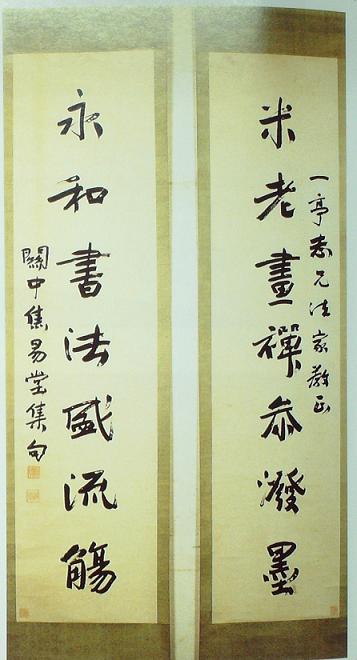 一亭老兄法家教正
米老畫禪參潑墨
永和書法盛流觴
關中焦易堂集句